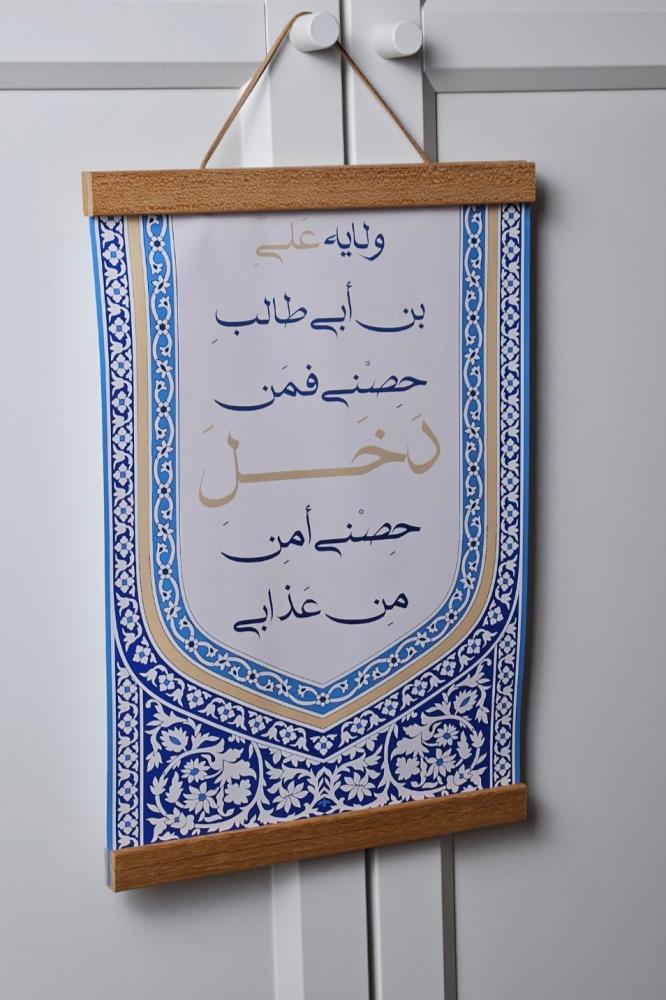 ولايه عَليِّ
بن أبي طالبِ
حِصْني فمَن
دَخَلَ
حِصْني أمِنَ
مِن عَذابي